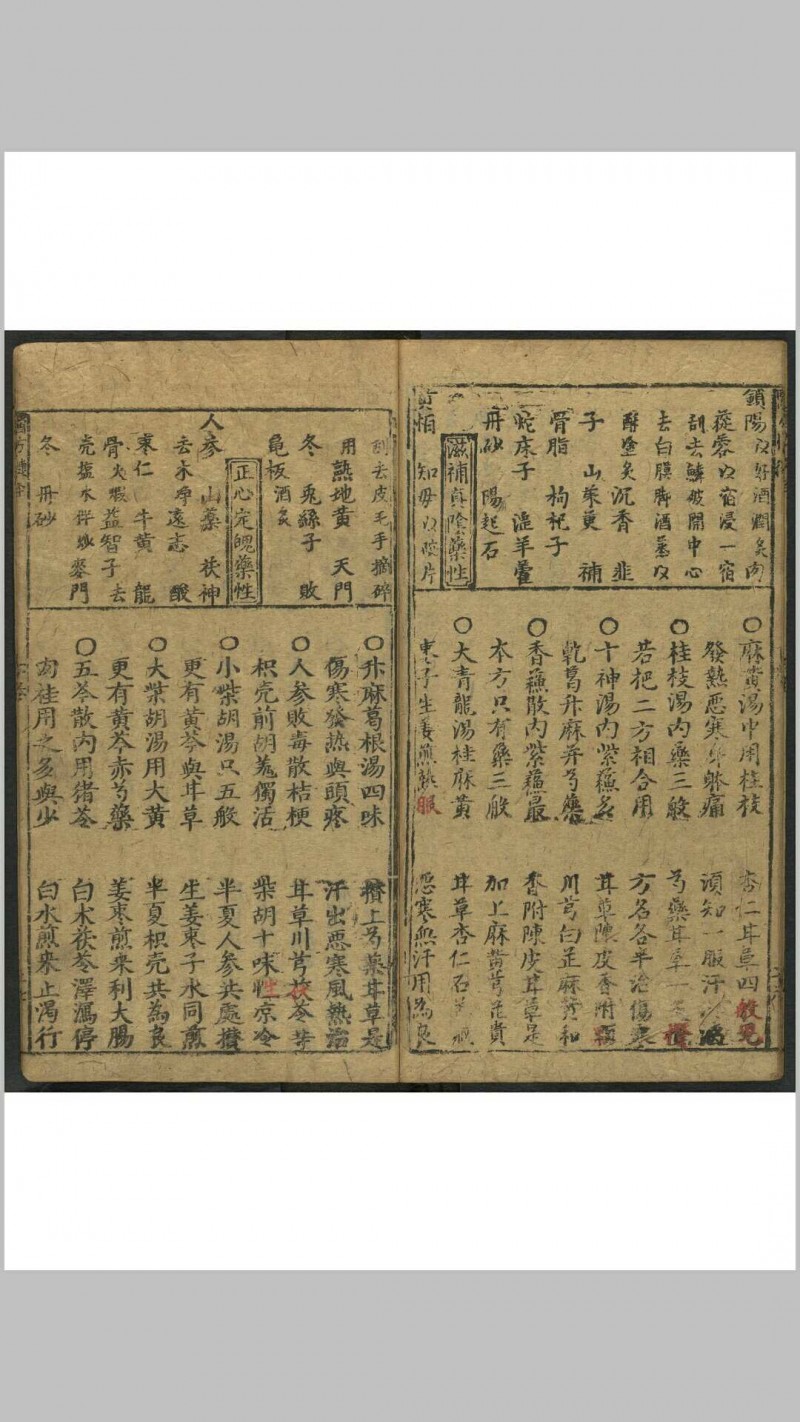 鎖陽以好酒潤炙肉
蓯蓉以酒浸一宿
刮去鱗破開中心
去白膜脚酒蒸以
酥塗炙沉香 韭
子 山茱萸 補
骨脂 枸杞子
蛇床子 滛羊藿
丹砂 陽起石
滋補真陰藥性
黄栢 知母以
刮去皮毛手摘碎
用熟地黄 天門
冬 兎絲子 敗
亀板酒炙
正心定魄藥性
人参 山藥 茯神
去木净遠志 酸
棗仁 牛黄 龍
骨火煆益智子去
壳塩水伴炒麥門
冬 丹砂
○麻黄湯中用桂枝 杏仁甘草四般見
發熱悪寒身體痛 須知一服汗
○桂枝湯内藥三般 芍藥甘草一
若把二方相合用 方名各半治傷寒
○十神湯内紫蘓多 甘草陳皮香附
乾葛升麻并芍藥 川芎白芷麻黄和
○香蘓散内紫蘓最 香附陳皮甘草是
本方只有藥三般 加上麻黄
○大青龍湯桂麻黄 甘草杏仁石
棗子生姜煎熱服 悪寒無汗用為良
○升麻葛根湯四味 攙上芍藥甘草是
傷寒發熱與頭疼 汗出悪寒風熱治
○人参敗毒散桔梗 甘草川芎茯苓等
枳壳前胡羗獨活 柴胡十味性凉冷
○小柴胡湯只五般 半夏人参共處攙
更有黄芩與甘草 生姜棗子水同煎
○大柴胡湯用大黄 半夏枳壳共為良
更有黄芩赤芍藥 姜棗煎来利大腸
○五苓散内用猪苓 白术茯苓澤瀉停
肉桂用之多與少 白水煎来止渴行